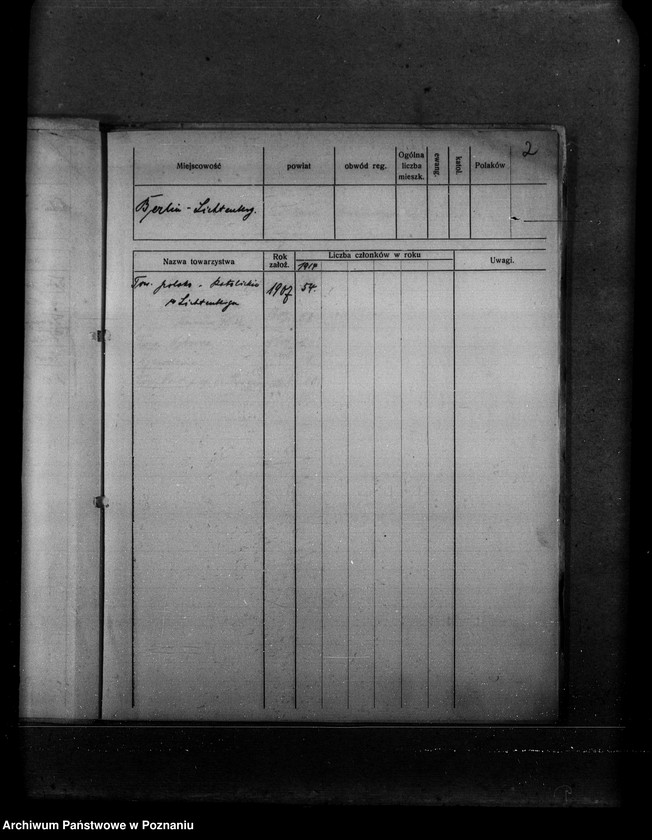 2
Miejscowość powiat obwód reg. Ogólna liczba mieszk. ewang. katol. Polaków
Berlin - Lichtenberg.
Nazwa towarzystwa Rok założ. Liczba członków w roku Uwagi.
Tow. polsko - katolickie 1907 54.
w Lichtenbergu
Archiwum Państwowe w Poznaniu